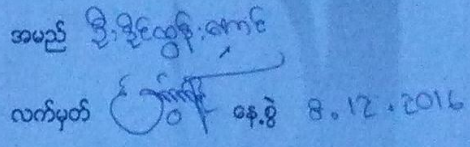 အမည် ဦးနိုင်ထွန်းအောင်
လက်မှတ် နေ့စွဲ 8.12.2016